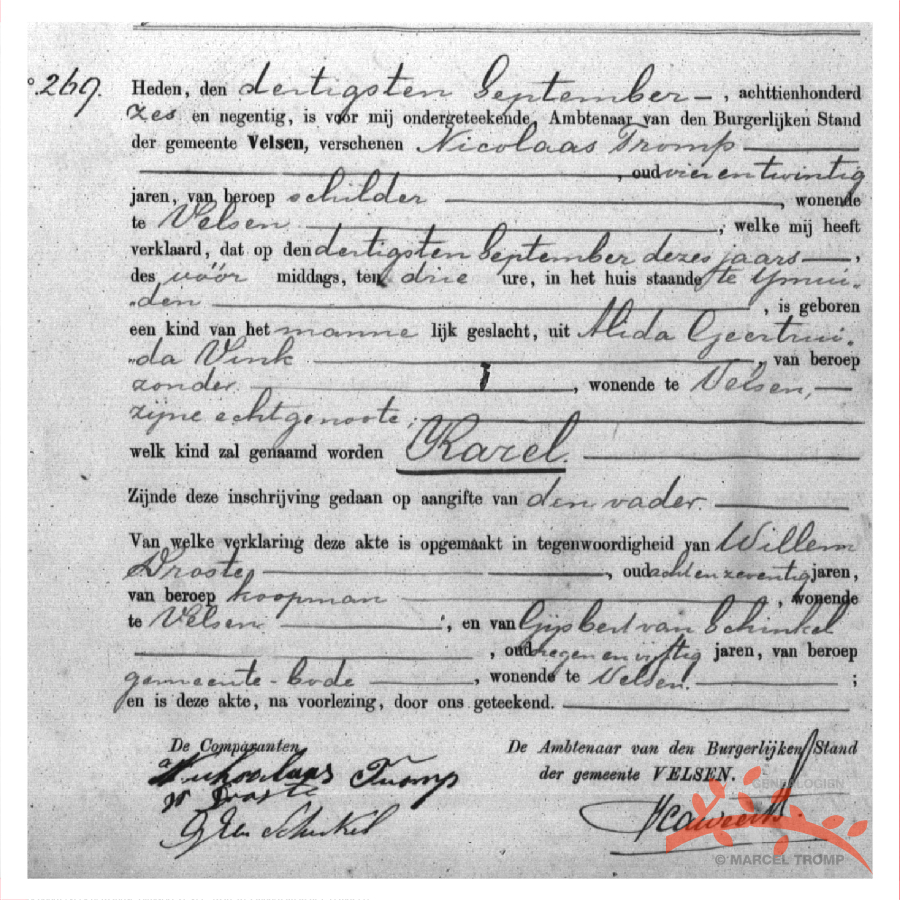 No. 269.
Heden, den dertigsten September –, achttienhonderd
zes en negentig, is voor mij ondergeteekende, Ambtenaar van den Burgerlijken Stand
der gemeente Velsen, verschenen Nicolaas Tromp
, oud vier en twintig
jaren, van beroep schilder , wonende
te Velsen , welke mij heeft
verklaard, dat op den dertigsten September dezes jaars — ,
des vóór middags, ten drie ure, in het huis staande te IJmui-
den , is geboren
een kind van het manne lijk geslacht, uit Alida Geertrui-
da Vink , van beroep
zonder , wonende te Velsen, —
zijne echtgenoote;
welk kind zal genaamd worden Karel.
Zijnde deze inschrijving gedaan op aangifte van den vader.
Van welke verklaring deze akte is opgemaakt in tegenwoordigheid van Willem
Droste , oud acht en zeventig jaren,
van beroep koopman , wonende
te Velsen ; en van Gijsbert van Schinkel
, oud negen en vijftig jaren, van beroep
gemeente-bode , wonende te Velsen. ;
en is deze akte, na voorlezing, door ons geteekend.
De Comparanten De Ambtenaar van den Burgerlijken Stand
der gemeente VELSEN.
Nicolaas Tromp
W Droste
G van Schinkel
GENEALOGIEN
© MARCEL TROMP